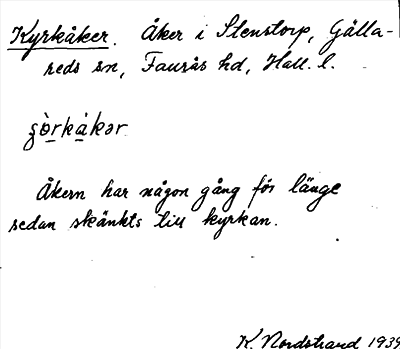 Kyrkåker. Åker i Stenstorp, Gälla-
reds sn, Faurås hd, Hall. l.
Åkern har någon gång för länge
sedan skänkts till kyrkan.
K. Nordstrand 1939